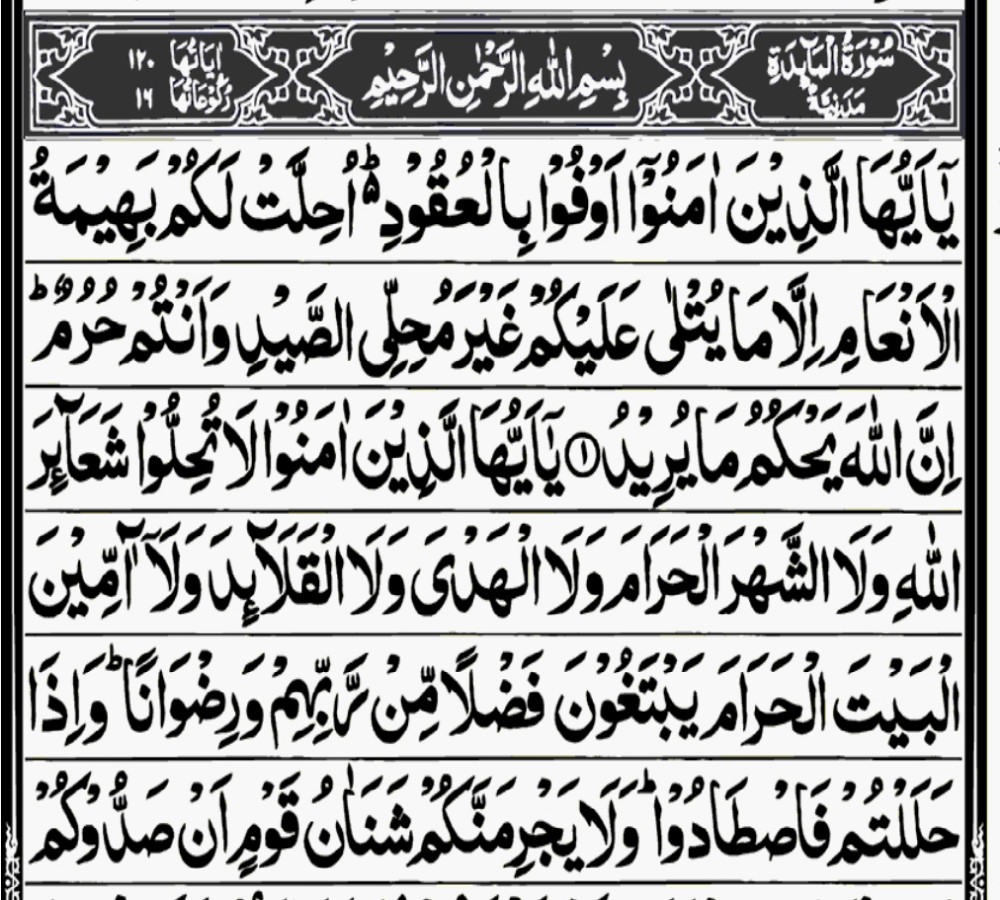 سُوْرَةُ الْمَآئِدَةِ مَدَنِيَّةٌ
بِسْمِ اللّٰهِ الرَّحْمٰنِ الرَّحِيْمِ
اٰيَاتُهَا ١٢٠
رُكُوْعَاتُهَا ١٦
يٰۤاَيُّهَا الَّذِيْنَ اٰمَنُوْۤا اَوْفُوْا بِالْعُقُوْدِ ؕ۬ اُحِلَّتْ لَكُمْ بَهِيْمَةُ
الْاَنْعَامِ اِلَّا مَا يُتْلٰى عَلَيْكُمْ غَيْرَ مُحِلِّى الصَّيْدِ وَاَنْتُمْ حُرُمٌ ؕ
اِنَّ اللّٰهَ يَحْكُمُ مَا يُرِيْدُ ۝١ يٰۤاَيُّهَا الَّذِيْنَ اٰمَنُوْا لَا تُحِلُّوْا شَعَآئِرَ
اللّٰهِ وَلَا الشَّهْرَ الْحَرَامَ وَلَا الْهَدْىَ وَلَا الْقَلَآئِدَ وَلَاۤ آٰمِّيْنَ
الْبَيْتَ الْحَرَامَ يَبْتَغُوْنَ فَضْلًا مِّنْ رَّبِّهِمْ وَرِضْوَانًا ؕ وَاِذَا
حَلَلْتُمْ فَاصْطَادُوْا ؕ وَلَا يَجْرِمَنَّكُمْ شَنَاٰنُ قَوْمٍ اَنْ صَدُّوْكُمْ